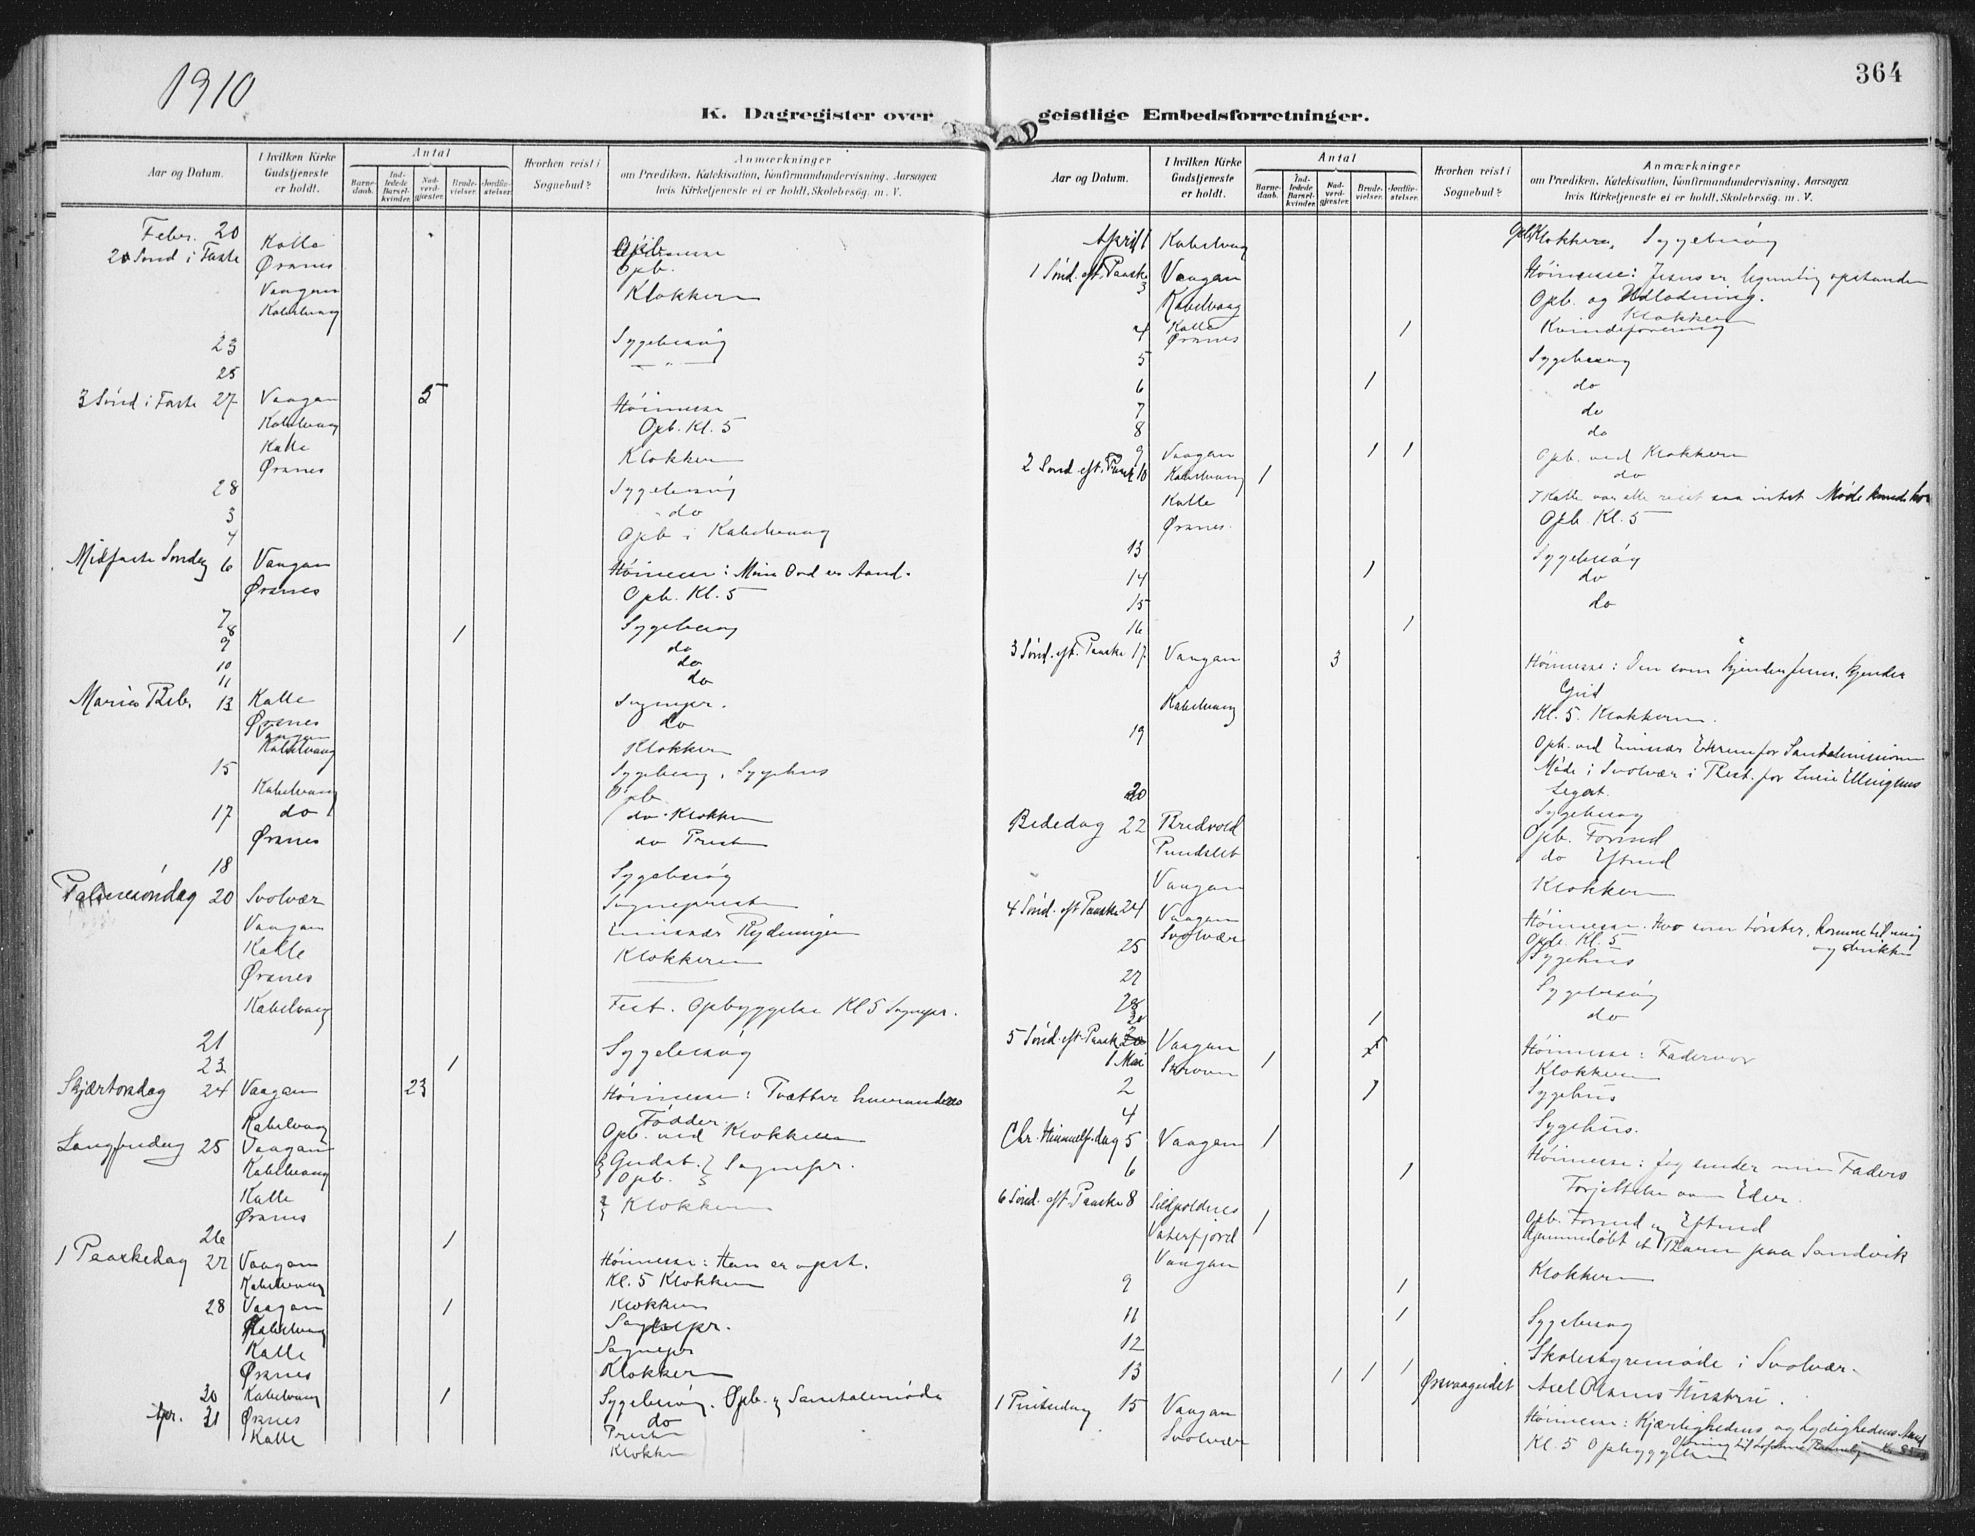 1910
364
K. Dagregister over geistlige Embedsforretninger.
Aar og Datum.
I hvilken Kirke Gudstjeneste er holdt.
Antal
Barnedaab.
Indledede Barselkvinder.
Nadverdgjæster.
Brudevielser.
Jordfæstelser.
Hvorhen reist i Sognebud?
Anmærkninger
om Prædiken, Katekisation, Konfirmandundervisning, Aarsagen
hvis Kirketjeneste ei er holdt, Skolebesøg m. V.
Febr. 20 Kalle
2 Sønd i Faste Ørsnes Opb.
Vaagan Klokkeren
Kabelvaag
23 Sygebesøg
25 — " —
3 Sønd i Faste 27 Vaagan 5 Høimesse
Kabelvaag Opb. Kl. 5
Kalle Klokkeren
Ørsnes
28 Sygebesøg
3 do
4 Opb i Kabelvaag
Midfaste Søndag 6 Vaagan Høimesse: Mine Ord er Aand.
Ørsnes Opb. Kl. 5
7 Sygebesøg
8 1 do
9 do
10 do
11
Mariæ Beb. 13 Kalle Sognepr.
Ørsnes do
Vaagan Klokkeren
Kabelvaag
15 Sygebesøg, Sygehus
Kabelvaag Opb.
17 do do Klokkeren
Ørsnes do Presten
18 Sygebesøg
Palmesøndag 20 Svolvær Sognepresten
Vaagan Emissær
Kalle Klokkeren
Ørsnes
Kabelvaag Fest. Opbyggelse Kl 5 Sognepr.
21 Sygebesøg
23 1
Skjærtorsdag 24 Vaagan 23 Høimesse: Tvætter hverandres
Kabelvaag Fødder.
Opb. ved Klokkeren
Langfredag 25 Vaagan Gudst. } Sognepr.
Kabelvaag Opb.
Kalle } Klokkeren
Ørsnes
26 1
1 Paaskedag 27 Vaagan Høimesse: Han er opst.
Kabelvaag Kl. 5 Klokkeren
28 Vaagan 1 Klokkeren
Kabelvaag Sognepr.
Kalle Sognepr
Ørsnes Klokkeren
30 Kabelvaag 1 Sygebesøg. Opb. og Santalemøde
Apr. 31 Ørsnes do
Kalle Presten
Klokkeren
Aar og Datum.
I hvilken Kirke Gudstjeneste er holdt.
Antal
Barnedaab.
Indledede Barselkvinder.
Nadverdgjæster.
Brudevielser.
Jordfæstelser.
Hvorhen reist i Sognebud?
Anmærkninger
om Prædiken, Katekisation, Konfirmandundervisning, Aarsagen
hvis Kirketjeneste ei er holdt, Skolebesøg m. V.
April 1 Kabelvaag Opb. Klokkeren, Sygebesøg
1 Sønd. eft. Paaske 3 Vaagan Høimesse: Jesus er legemlig opstanden
Kabelvaag Opb. og Udlodning.
Kalle Klokkeren
4 Ørsnes 1 Kvindeforening
5 Sygebesøg
6 1 do
7 do
8 do
9 Vaagan 1 1 Opb. ved Klokkeren
2 Sønd. eft. Paask 10 Kabelvaag 1 do
Kalle I Kalle var alle reist saa intet Møde kunde ho
Ørsnes. Opb. Kl. 5
13 Sygebesøg
14 1 do
15 do
16 1
3 Sønd. eft. Paaske 17 Vaagan 3 Høimesse: Den som kjender Jesus, kjender
Gud
Kabelvaag Kl. 5. Klokkeren.
19 Opb. ved Emissær for Santalmissionen
Møde i Svolvær i Best. for Lucie Ellingsens
Legat.
20 Sygebesøg
Bededag 22 Bredvold Opb. Formd
Pundslet do Eftmd
Vaagan Klokkeren
4 Sønd. eft Paaske 24 Vaagan Høimesse. Hvo som tørster, komme til mig
Svolvær Opb. Kl. 5 og drikke
25 Sygehus
27 Sygebesøg
28 do
30 1
5 Sønd. eft. Paaske Vaagan Høimesse: Fadervor
1 Mai Skroven 1 Klokkeren
2 1 Sygehus
4 Sygehus.
Chr. Himmelf.dag 5 Vaagan 1 Høimesse: Jeg sender min Faders
6 1 Forjettelse over Eder.
6 Sønd. eft. Paaske 8 Sildpoldnes Opb. Formd og Eftmd
Vaterfjord 1 Hjemmedøbt et Barn paa Sandvik
Vaagan Klokkeren
9 1
11 1 Sygebesøg
12 Skolestyremøde i Svolvær.
13 1 1 1 Ørsvaagvidet Axel Olsens Hustru.
1 Pintsedag 15 Vaagan Høimesse: Kjærlighedens og lydighedens Aand
Svolvær Kl. 5 Opbyggelse